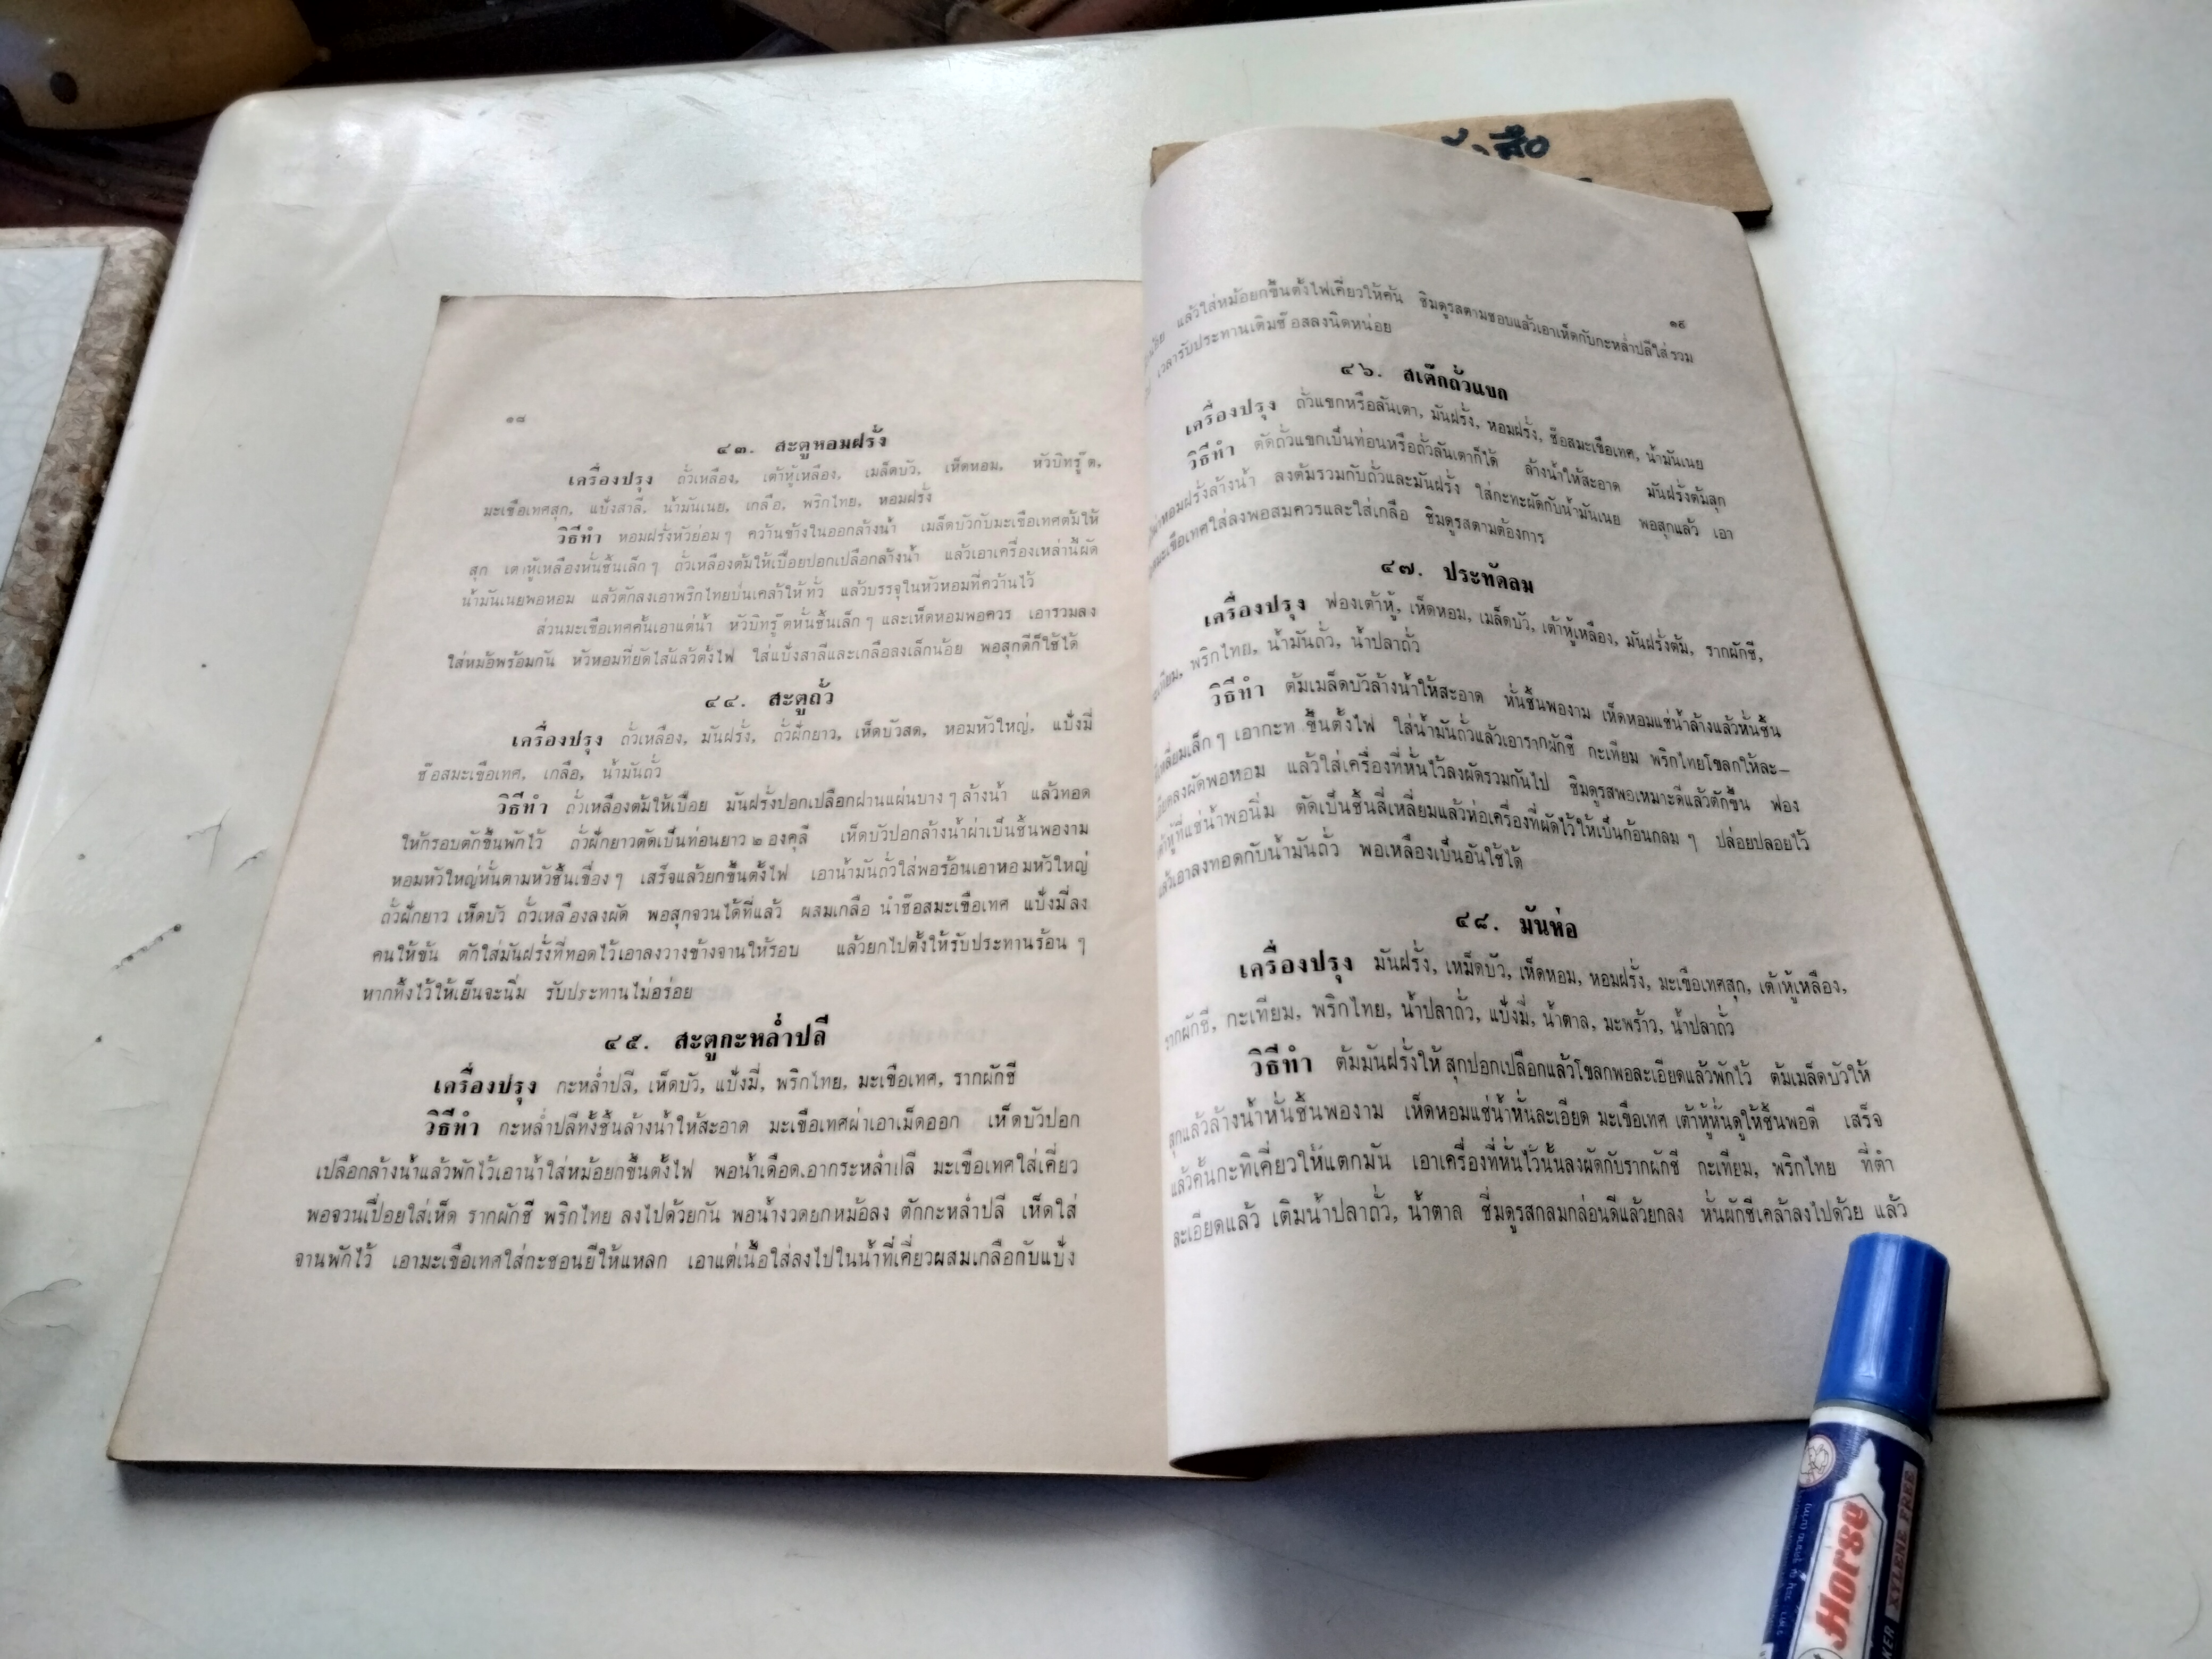 ๑๘
๔๓. สะตูหอมฝรั่ง
เครื่องปรุง ถั่วเหลือง, เต้าหู้เหลือง, เมล็ดบัว, เห็ดหอม, หัวบิทรู๊ต,
มะเขือเทศสุก, แป้งสาลี, น้ำมันเนย, เกลือ, พริกไทย, หอมฝรั่ง
วิธีทำ หอมฝรั่งหัวย่อม ๆ คว้านข้างในออกล้างน้ำ เมล็ดบัวกับมะเขือเทศต้มให้
สุก เต้าหู้เหลืองหั่นชิ้นเล็ก ๆ ถั่วเหลืองต้มให้เปื่อยปอกเปลือกล้างน้ำ แล้วเอาเครื่องเหล่านี้ผัด
น้ำมันเนยพอหอม แล้วตักลงเอาพริกไทยป่นเคล้าให้ทั่ว แล้วบรรจุในหัวหอมที่คว้านไว้
ส่วนมะเขือเทศคั้นเอาแต่น้ำ หัวบิทรู๊ตหั่นชิ้นเล็ก ๆ และเห็ดหอมพอควร เอารวมลง
ใส่หม้อพร้อมกัน หัวหอมที่ยัดไส้แล้วตั้งไฟ ใส่แป้งสาลีและเกลือลงเล็กน้อย พอสุกดีก็ใช้ได้
๔๔. สะตูถั่ว
เครื่องปรุง ถั่วเหลือง, มันฝรั่ง, ถั่วฝักยาว, เห็ดบัวสด, หอมหัวใหญ่, แป้งมี่
ซ๊อสมะเขือเทศ, เกลือ, น้ำมันถั่ว
วิธีทำ ถั่วเหลืองต้มให้เปื่อย มันฝรั่งปอกเปลือกฝานแผ่นบาง ๆ ล้างน้ำ แล้วทอด
ให้กรอบตักขึ้นพักไว้ ถั่วฝักยาวตัดเป็นท่อนยาว ๒ องคุลี เห็ดบัวปอกล้างน้ำผ่าเป็นชิ้นพองาม
หอมหัวใหญ่หั่นตามหัวชิ้นเขื่อง ๆ เสร็จแล้วยกขึ้นตั้งไฟ เอาน้ำมันถั่วใส่พอร้อนเอาหอมหัวใหญ่
ถั่วฝักยาว เห็ดบัว ถั่วเหลืองลงผัด พอสุกจวนได้ที่แล้ว ผสมเกลือ นำซ๊อสมะเขือเทศ แป้งมี่ลง
คนให้ข้น ตักใส่มันฝรั่งที่ทอดไว้เอาลงวางข้างจานให้รอบ แล้วยกไปตั้งให้รับประทานร้อน ๆ
หากทิ้งไว้ให้เย็นจะนิ่ม รับประทานไม่อร่อย
๔๕. สะตูกะหล่ำปลี
เครื่องปรุง กะหล่ำปลี, เห็ดบัว, แป้งมี่, พริกไทย, มะเขือเทศ, รากผักชี
วิธีทำ กะหล่ำปลีทั้งชิ้นล้างน้ำให้สะอาด มะเขือเทศผ่าเอาเม็ดออก เห็ดบัวปอก
เปลือกล้างน้ำแล้วพักไว้เอาน้ำใส่หม้อยกขึ้นตั้งไฟ พอน้ำเดือดเอากระหล่ำปลี มะเขือเทศใส่เคี่ยว
พอจวนเปื่อยใส่เห็ด รากผักชี พริกไทย ลงไปด้วยกัน พอน้ำงวดยกหม้อลง ตักกะหล่ำปลี เห็ดใส่
จานพักไว้ เอามะเขือเทศใส่กะชอนยีให้แหลก เอาแต่เนื้อใส่ลงไปในน้ำที่เคี่ยวผสมเกลือกับแป้ง
๑๙
แล้วใส่หม้อยกขึ้นตั้งไฟเคี่ยวให้ค้น ชิมดูรสตามชอบแล้วเอาเห็ดกับกะหล่ำปลีใส่รวม
เวลารับประทานเติมซ๊อสลงนิดหน่อย
๔๖. สเต๊กถั่วแขก
เครื่องปรุง ถั่วแขกหรือลันเตา, มันฝรั่ง, หอมฝรั่ง, ซ๊อสมะเขือเทศ, น้ำมันเนย
วิธีทำ ตัดถั่วแขกเป็นท่อนหรือถั่วลันเตาก็ได้ ล้างน้ำให้สะอาด มันฝรั่งต้มสุก
หอมฝรั่งล้างน้ำ ลงต้มรวมกับถั่วและมันฝรั่ง ใส่กะทะผัดกับน้ำมันเนย พอสุกแล้ว เอา
มะเขือเทศใส่ลงพอสมควรและใส่เกลือ ชิมดูรสตามต้องการ
๔๗. ประทัดลม
เครื่องปรุง ฟองเต้าหู้, เห็ดหอม, เมล็ดบัว, เต้าหู้เหลือง, มันฝรั่งต้ม, รากผักชี,
พริกไทย, น้ำมันถั่ว, น้ำปลาถั่ว
วิธีทำ ต้มเมล็ดบัวล้างน้ำให้สะอาด หั่นชิ้นพองาม เห็ดหอมแช่น้ำล้างแล้วหั่นชิ้น
เหลี่ยมเล็ก ๆ เอากะทะขึ้นตั้งไฟ ใส่น้ำมันถั่วแล้วเอารากผักชี กะเทียม พริกไทยโขลกให้ละ-
เอียดลงผัดพอหอม แล้วใส่เครื่องที่หั่นไว้ลงผัดรวมกันไป ชิมดูรสพอเหมาะดีแล้วตักขึ้น ฟอง
เต้าหู้ที่แช่น้ำพอนิ่ม ตัดเป็นชิ้นสี่เหลี่ยมแล้วห่อเครื่องที่ผัดไว้ให้เป็นก้อนกลม ๆ ปล่อยปลอยไว้
แล้วเอาลงทอดกับน้ำมันถั่ว พอเหลืองเป็นอันใช้ได้
๔๘. มันห่อ
เครื่องปรุง มันฝรั่ง, เหม็ดบัว, เห็ดหอม, หอมฝรั่ง, มะเขือเทศสุก, เต้าหู้เหลือง,
รากผักชี, กะเทียม, พริกไทย, น้ำปลาถั่ว, แป้งมี่, น้ำตาล, มะพร้าว, น้ำปลาถั่ว
วิธีทำ ต้มมันฝรั่งให้สุกปอกเปลือกแล้วโขลกพอละเอียดแล้วพักไว้ ต้มเมล็ดบัวให้
สุกแล้วล้างน้ำหั่นชิ้นพองาม เห็ดหอมแช่น้ำหั่นละเอียด มะเขือเทศ เต้าหู้หั่นดูให้ชิ้นพอดี เสร็จ
แล้วคั้นกะทิเคี่ยวให้แตกมัน เอาเครื่องที่หั่นไว้นั้นลงผัดกับรากผักชี กะเทียม, พริกไทย ที่ตำ
ละเอียดแล้ว เติมน้ำปลาถั่ว, น้ำตาล ชิ่มดูรสกลมกล่อนดีแล้วยกลง หั่นผักชีเคล้าลงไปด้วย แล้ว
Horse
XYLENE FREE